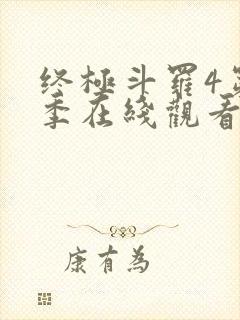 终極斗羅4第
季在綫觀看
康有為